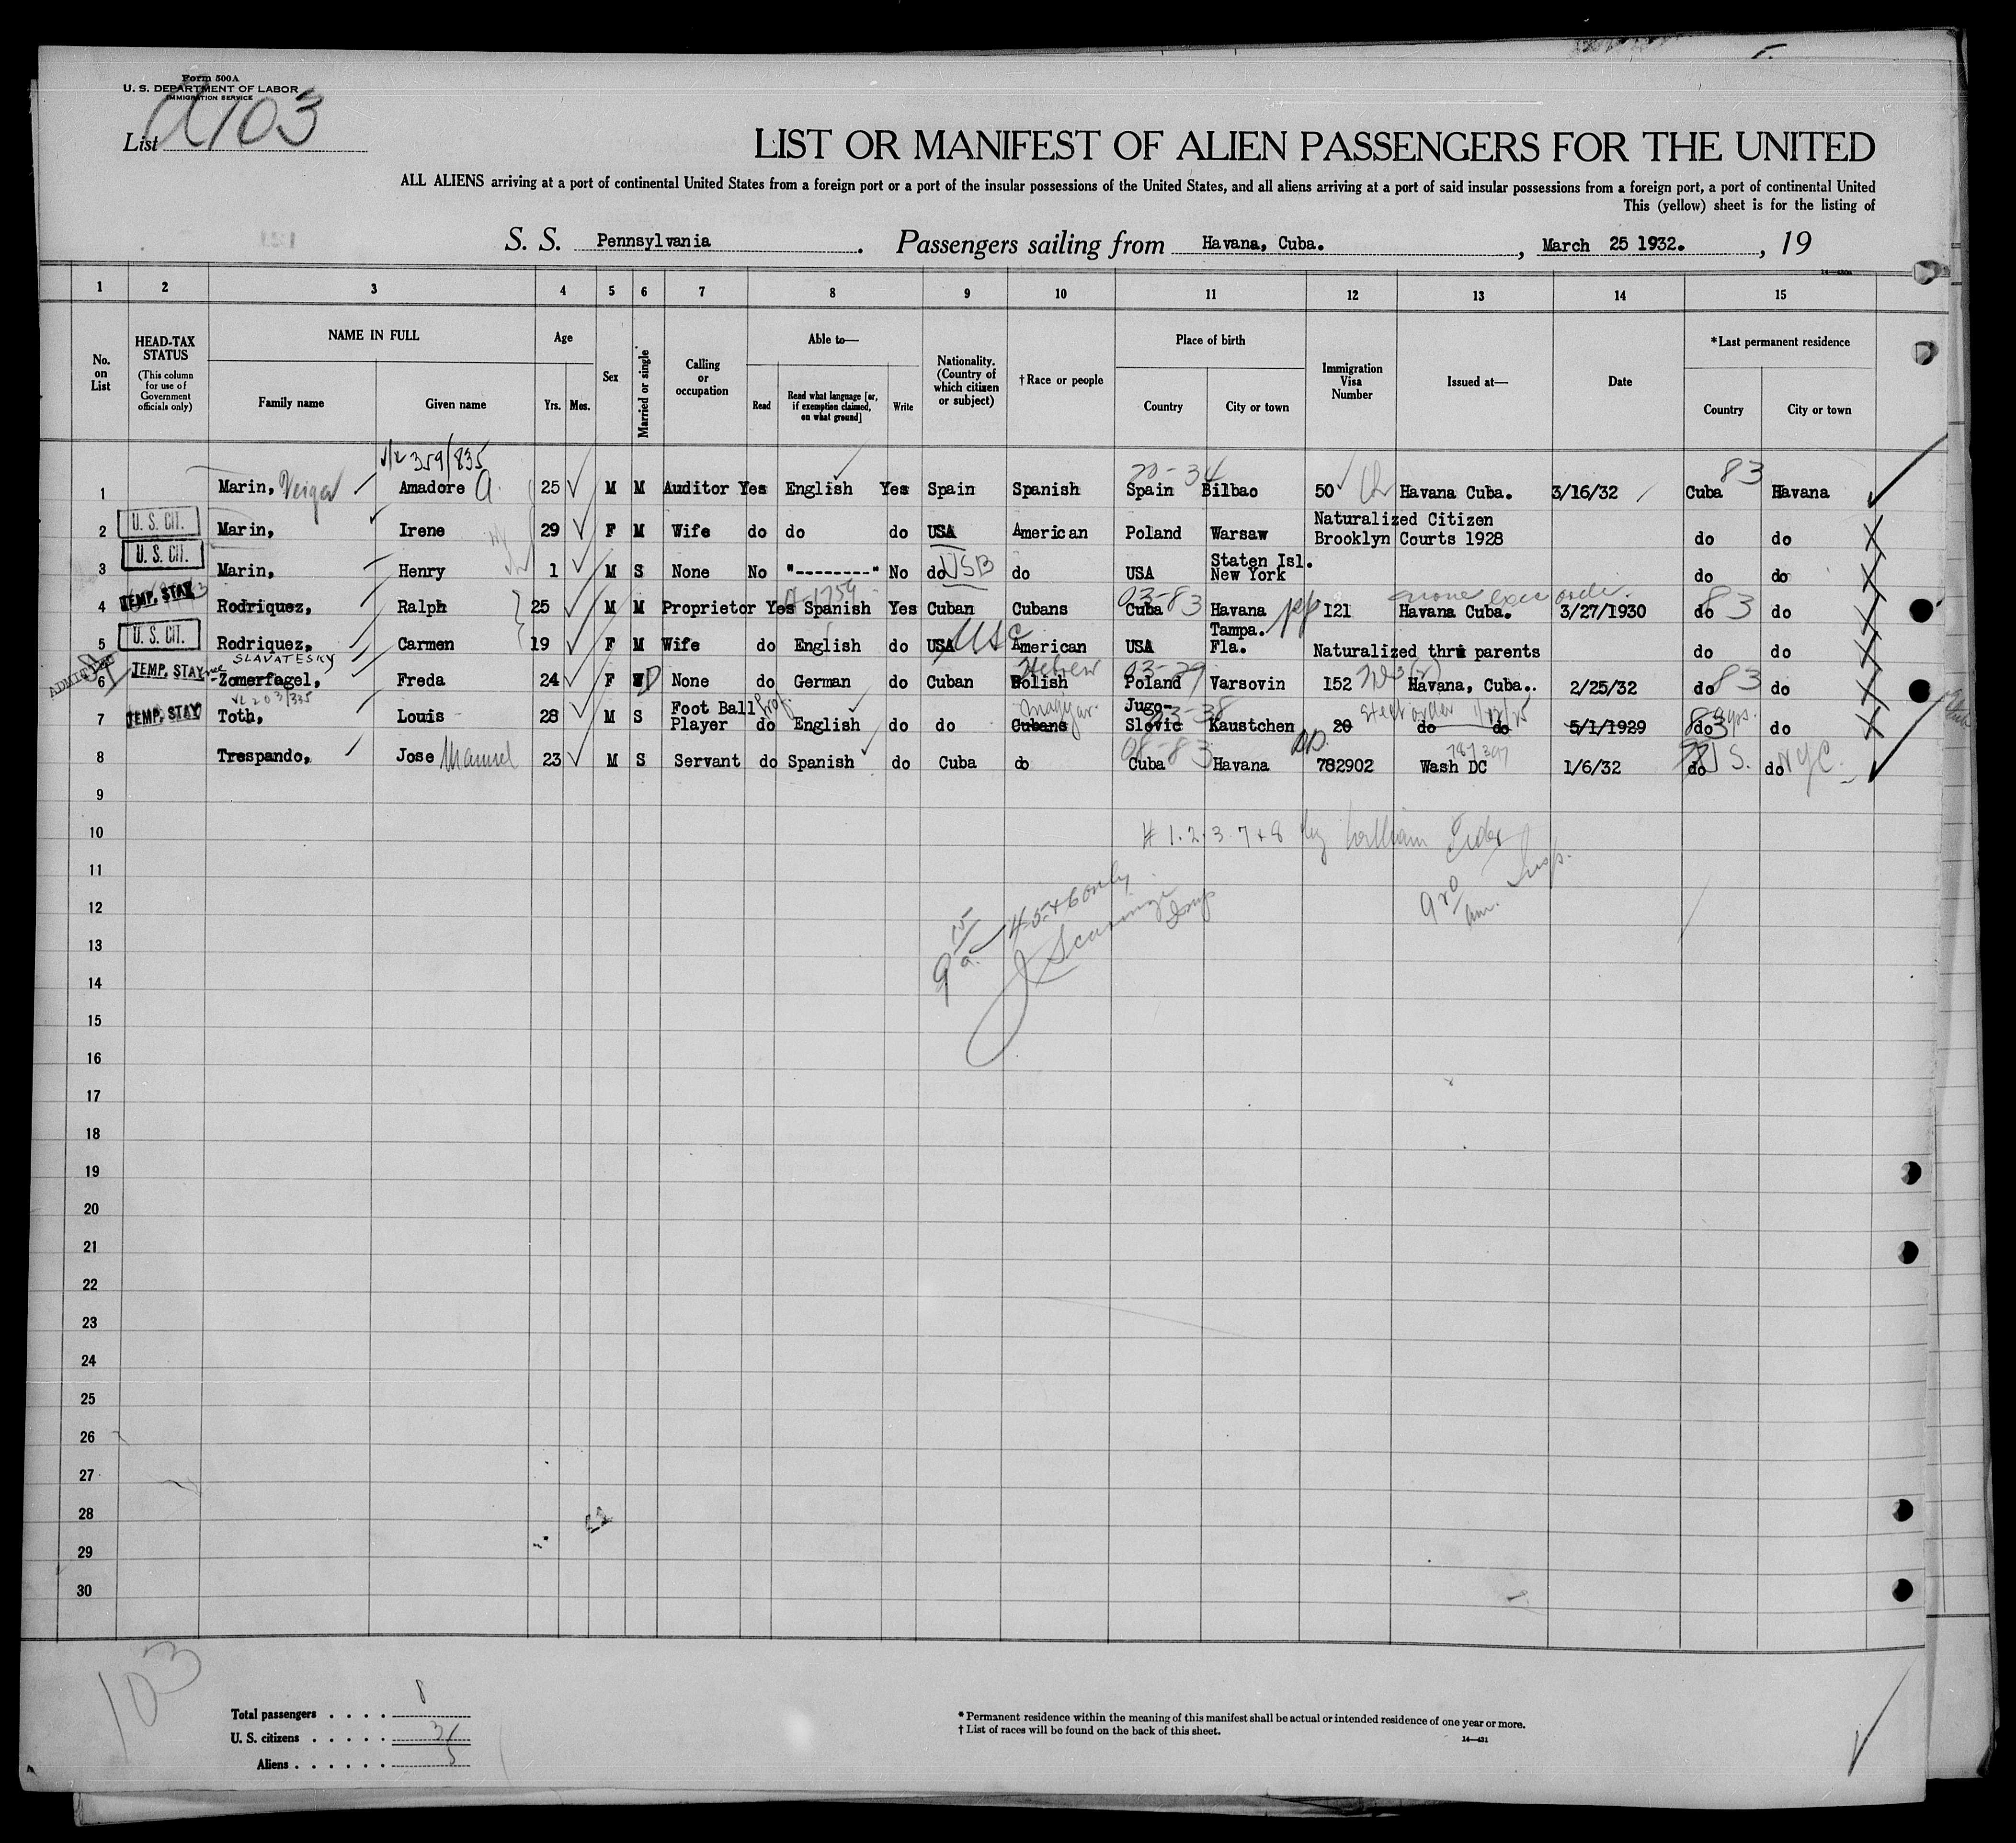 Form 500 A
U. S. DEPARTMENT OF LABOR
IMMIGRATION SERVICE
List 103
LIST OR MANIFEST OF ALIEN PASSENGERS FOR THE UNITED
ALL ALIENS arriving at a port of continental United States from a foreign port or a port of the insular possessions of the United States, and all aliens arriving at a port of said insular possessions from a foreign port, a port of continental United
This (yellow) sheet is for the listing of
S. S. Pennsylvania. Passengers sailing from Havana, Cuba. , March 25 1932. , 19
1 2 3 4 5 6 7 8 9 10 11 12 13 14 15
No. on List
HEAD-TAX STATUS
(This column for use of Government officials only)
NAME IN FULL
Family name Given name
Age
Yrs. Mos.
Sex
Married or single
Calling or occupation
Able to—
Read
Read what language [or, if exemption claimed, on what ground]
Write
Nationality. (Country of which citizen or subject)
† Race or people
Place of birth
Country City or town
Immigration Visa Number
Issued at—
Date
* Last permanent residence
Country City or town
359/835
1 Marin, Amadore A. 25 M M Auditor Yes English Yes Spain Spanish Spain Bilbao 50 Havana Cuba. 3/16/32 Cuba 83 Havana
2 U. S. CIT. Marin, Irene 29 F M Wife do do do USA American Poland Warsaw Naturalized Citizen Brooklyn Courts 1928 do do
3 U. S. CIT. Marin, Henry 1 M S None No "--------" No do USB do USA Staten Isl. New York do do
4 TEMP. STAY Rodriquez, Ralph 25 M M Proprietor Yes Spanish Yes Cuban Cubans Cuba 03-83 Havana 121 Havana Cuba. 3/27/1930 do 83 do
5 U. S. CIT. Rodriquez, Carmen 19 F M Wife do English do USA USC American USA Tampa. Fla. Naturalized thru parents do do
ADMITTED
6 TEMP. STAY SLAVATESKY Zomerfagel, Freda 24 F D None do German do Cuban Hebrew Polish Poland 03-29 Varsovin 152 Havana, Cuba.. 2/25/32 do 83 do
7 TEMP. STAY Toth, Louis 28 M S Foot Ball Player Prof. do English do do Magyar. Cubans Jugo-Slovic Kaustchen 20 do do 5/1/1929 do 83 do
8 Trespando, Jose Manuel 23 M S Servant do Spanish do Cuba do Cuba 08-83 Havana 782902 Wash DC 1/6/32 do U S. do NYC.
9
10
# 1. 2. 3 7 + 8 by William
11
Insp.
12
9 15/a. 4-5 + 6 only
13
14
15
16
17
18
19
20
21
22
23
24
25
26
27
28
29
30
103
Total passengers . . . . 8
U. S. citizens . . . . . 3
Aliens . . . . . . 5
* Permanent residence within the meaning of this manifest shall be actual or intended residence of one year or more.
† List of races will be found on the back of this sheet.
14—431